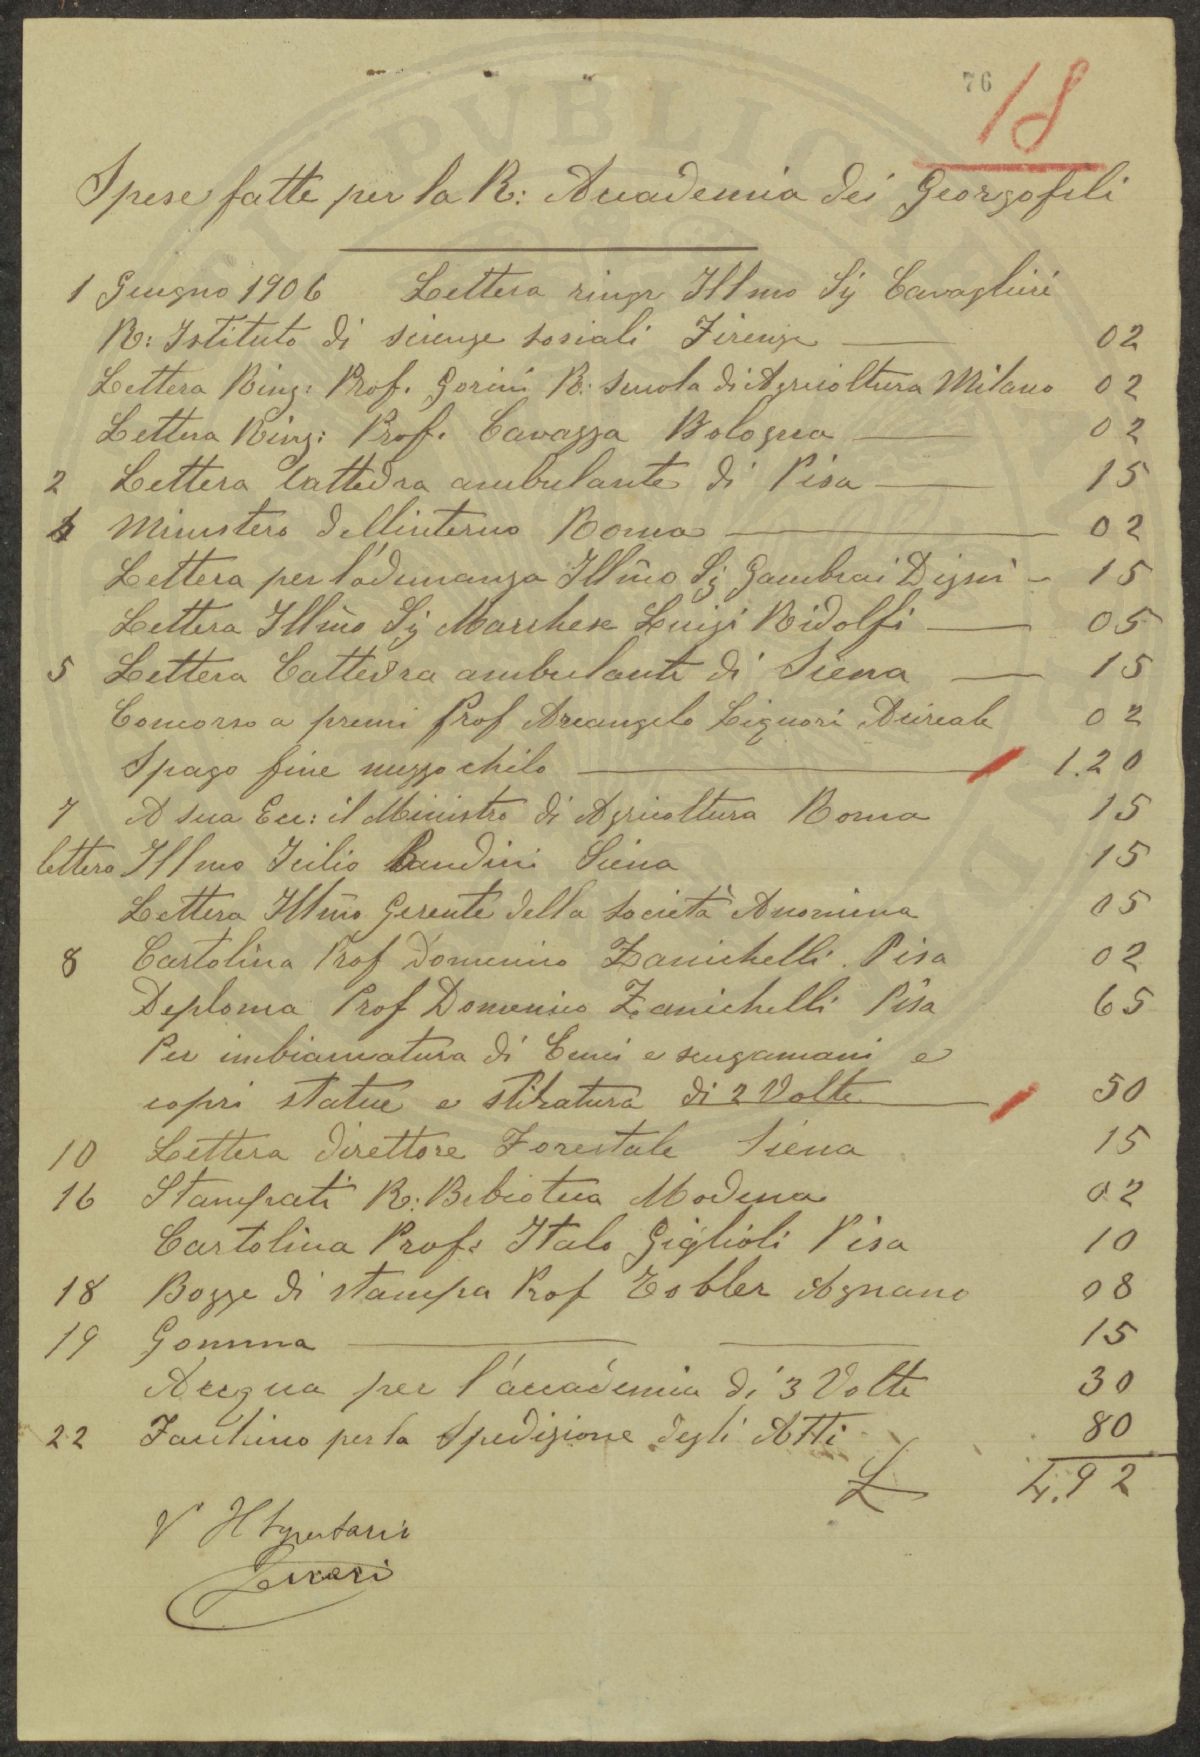 76
18
Spese fatte per la R: Accademia dei Georgofili
1 Giugno 1906 Lettera ringr Illmo Sig Cavaglieri
R: Istituto di scienze sosiali Firenze 02
Lettera Ring: Prof. Gorini R: scuola di Agricoltura Milano 02
Lettera Ring: Prof. Cavazza Bologna 02
2 Lettera Cattedra ambulante di Pisa 15
4 Ministero dellinterno Roma 02
Lettera per l'adunanza Illmo Sig Gambrai Digni 15
Lettera Illmo Sig Marchese Luigi Ridolfi 05
5 Lettera Cattedra ambulante di Siena 15
Concorso a premi Prof Arcangelo Liguori Acireale 02
Spago fine mezzo chilo 1.20
7 A sua Ecc: il Ministro di Agricoltura Roma 15
lettera Illmo Icilio Bandini Siena 15
Lettera Illmo Gerente della società Anonima 05
8 Cartolina Prof Domenico Zanichelli Pisa 02
Deploma Prof Domenico Zanichelli Pisa 65
Per imbiancatura di Cenci e sciugamani e
copri statue e stiratura di 2 Volte 50
10 Lettera direttore Forestale Siena 15
16 Stampati R: Bibioteca Modena 02
Cartolina Prof: Italo Giglioli Pisa 10
18 Bozze di stampa Prof Tobler Agnano 08
19 Gomma 15
Acqua per l'accademia di 3 Volte 30
22 Facchino per la Spedizione degli Atti 80
L 4.92
V Il Segretario